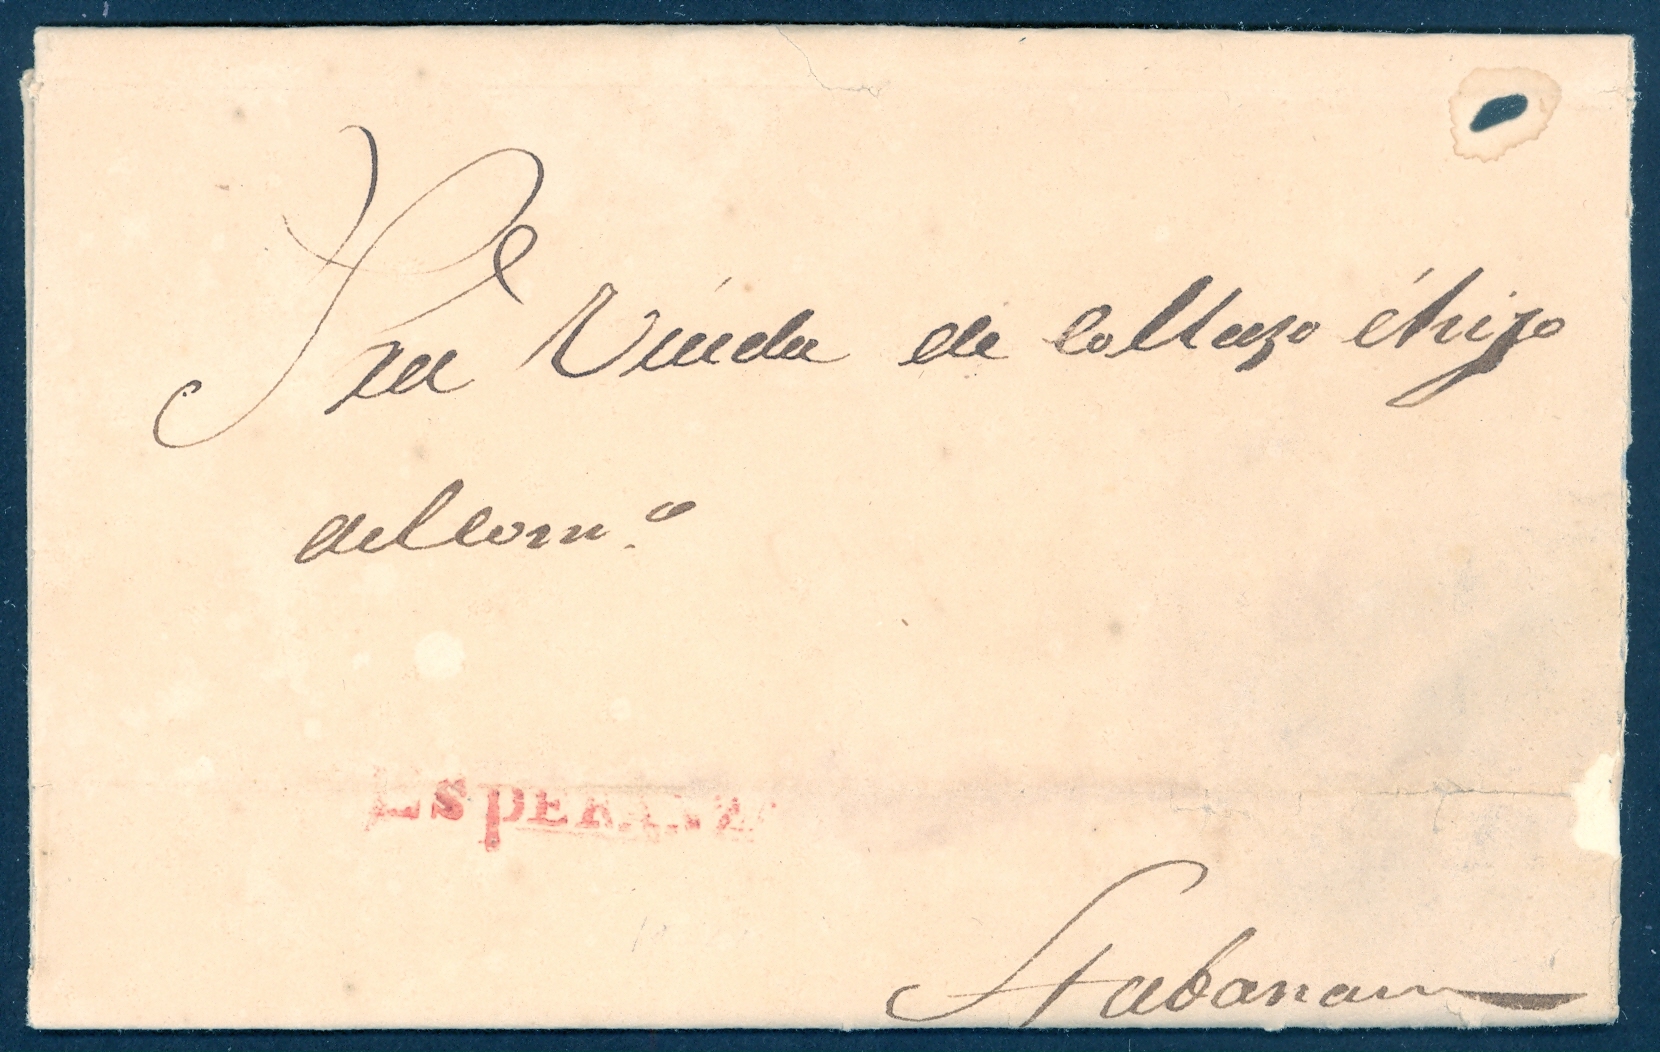 Sra Viuda de Collazo é hijo
del com.o
ESPERANZA
Habana